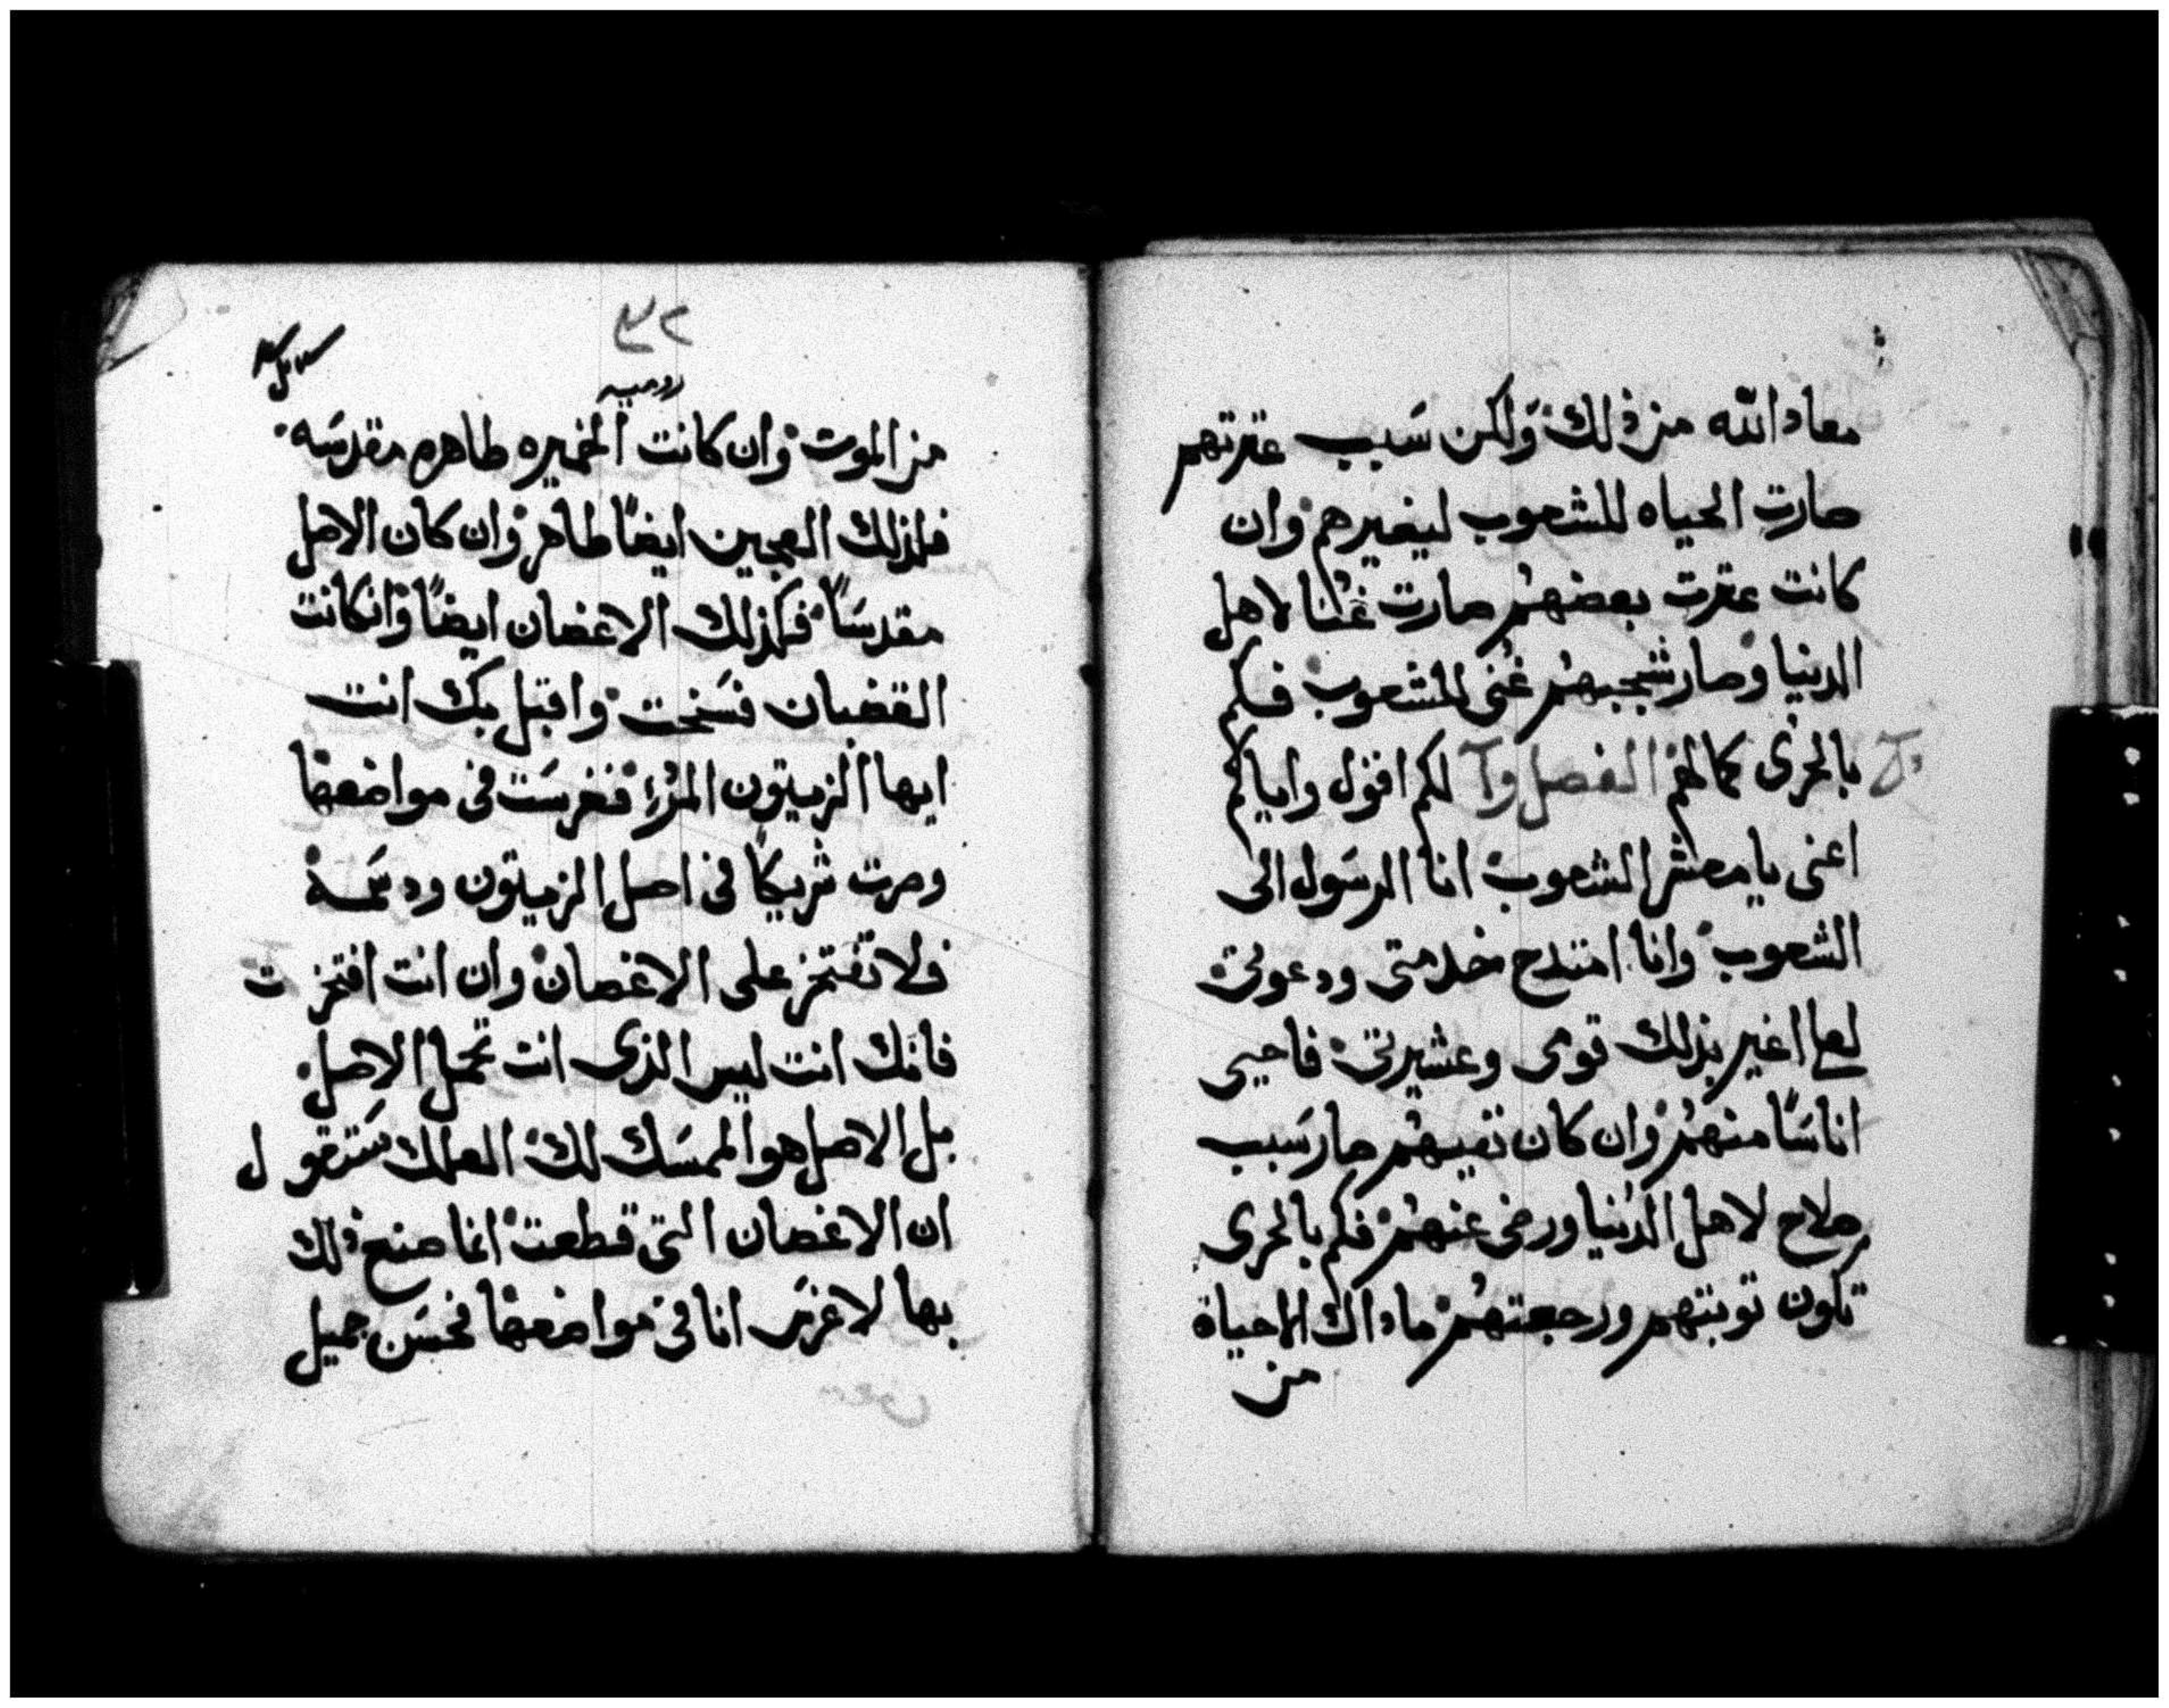 معاد الله من ذلك ولكن سبب عترتهم
صارت الحياه للشعوب ليغيرهم وان
كانت عترت بعضهم صارت غنا لاهل
الدنيا وصار شجبهم غنى للشعوب فكم
بالحرى كمالهم الفصل وآ لكم اقول واياكم
اعنى يا معشر الشعوب انا الرسول الى
الشعوب وانا امتدح خدمتى ودعوتى
لعلما اغير بذلك قومى وعشيرتى فاحيى
اناسًا منهم وان كان نفيهم صار سبب
صلاح لاهل الدنيا ورضى عنهم فكم بالحرى
تكون توبتهم ورجعتهم ماذاك الا حياة
من
٣٢
روميه
من الموت وان كانت الخميره طاهره مقدسه
فلذلك العجين ايضًا طاهر وان كان الاصل
مقدسًا فكذلك الاغصان ايضًا وان كانت
القضبان فسخت واقبل بك انت
ايها الزيتون المرّ فغرست فى مواضعها
وصرت شريكًا فى اصل الزيتون ودسمه
فلا تفتخر على الاغصان وان انت افتخرت
فانك انت ليس الذى انت تحمل الاصل
بل الاصل هو الممسك لك العلك ستقول
ان الاغصان التى قطعت انما صنع ذلك
بها لاغرس انا فى مواضعها فحسن جميل